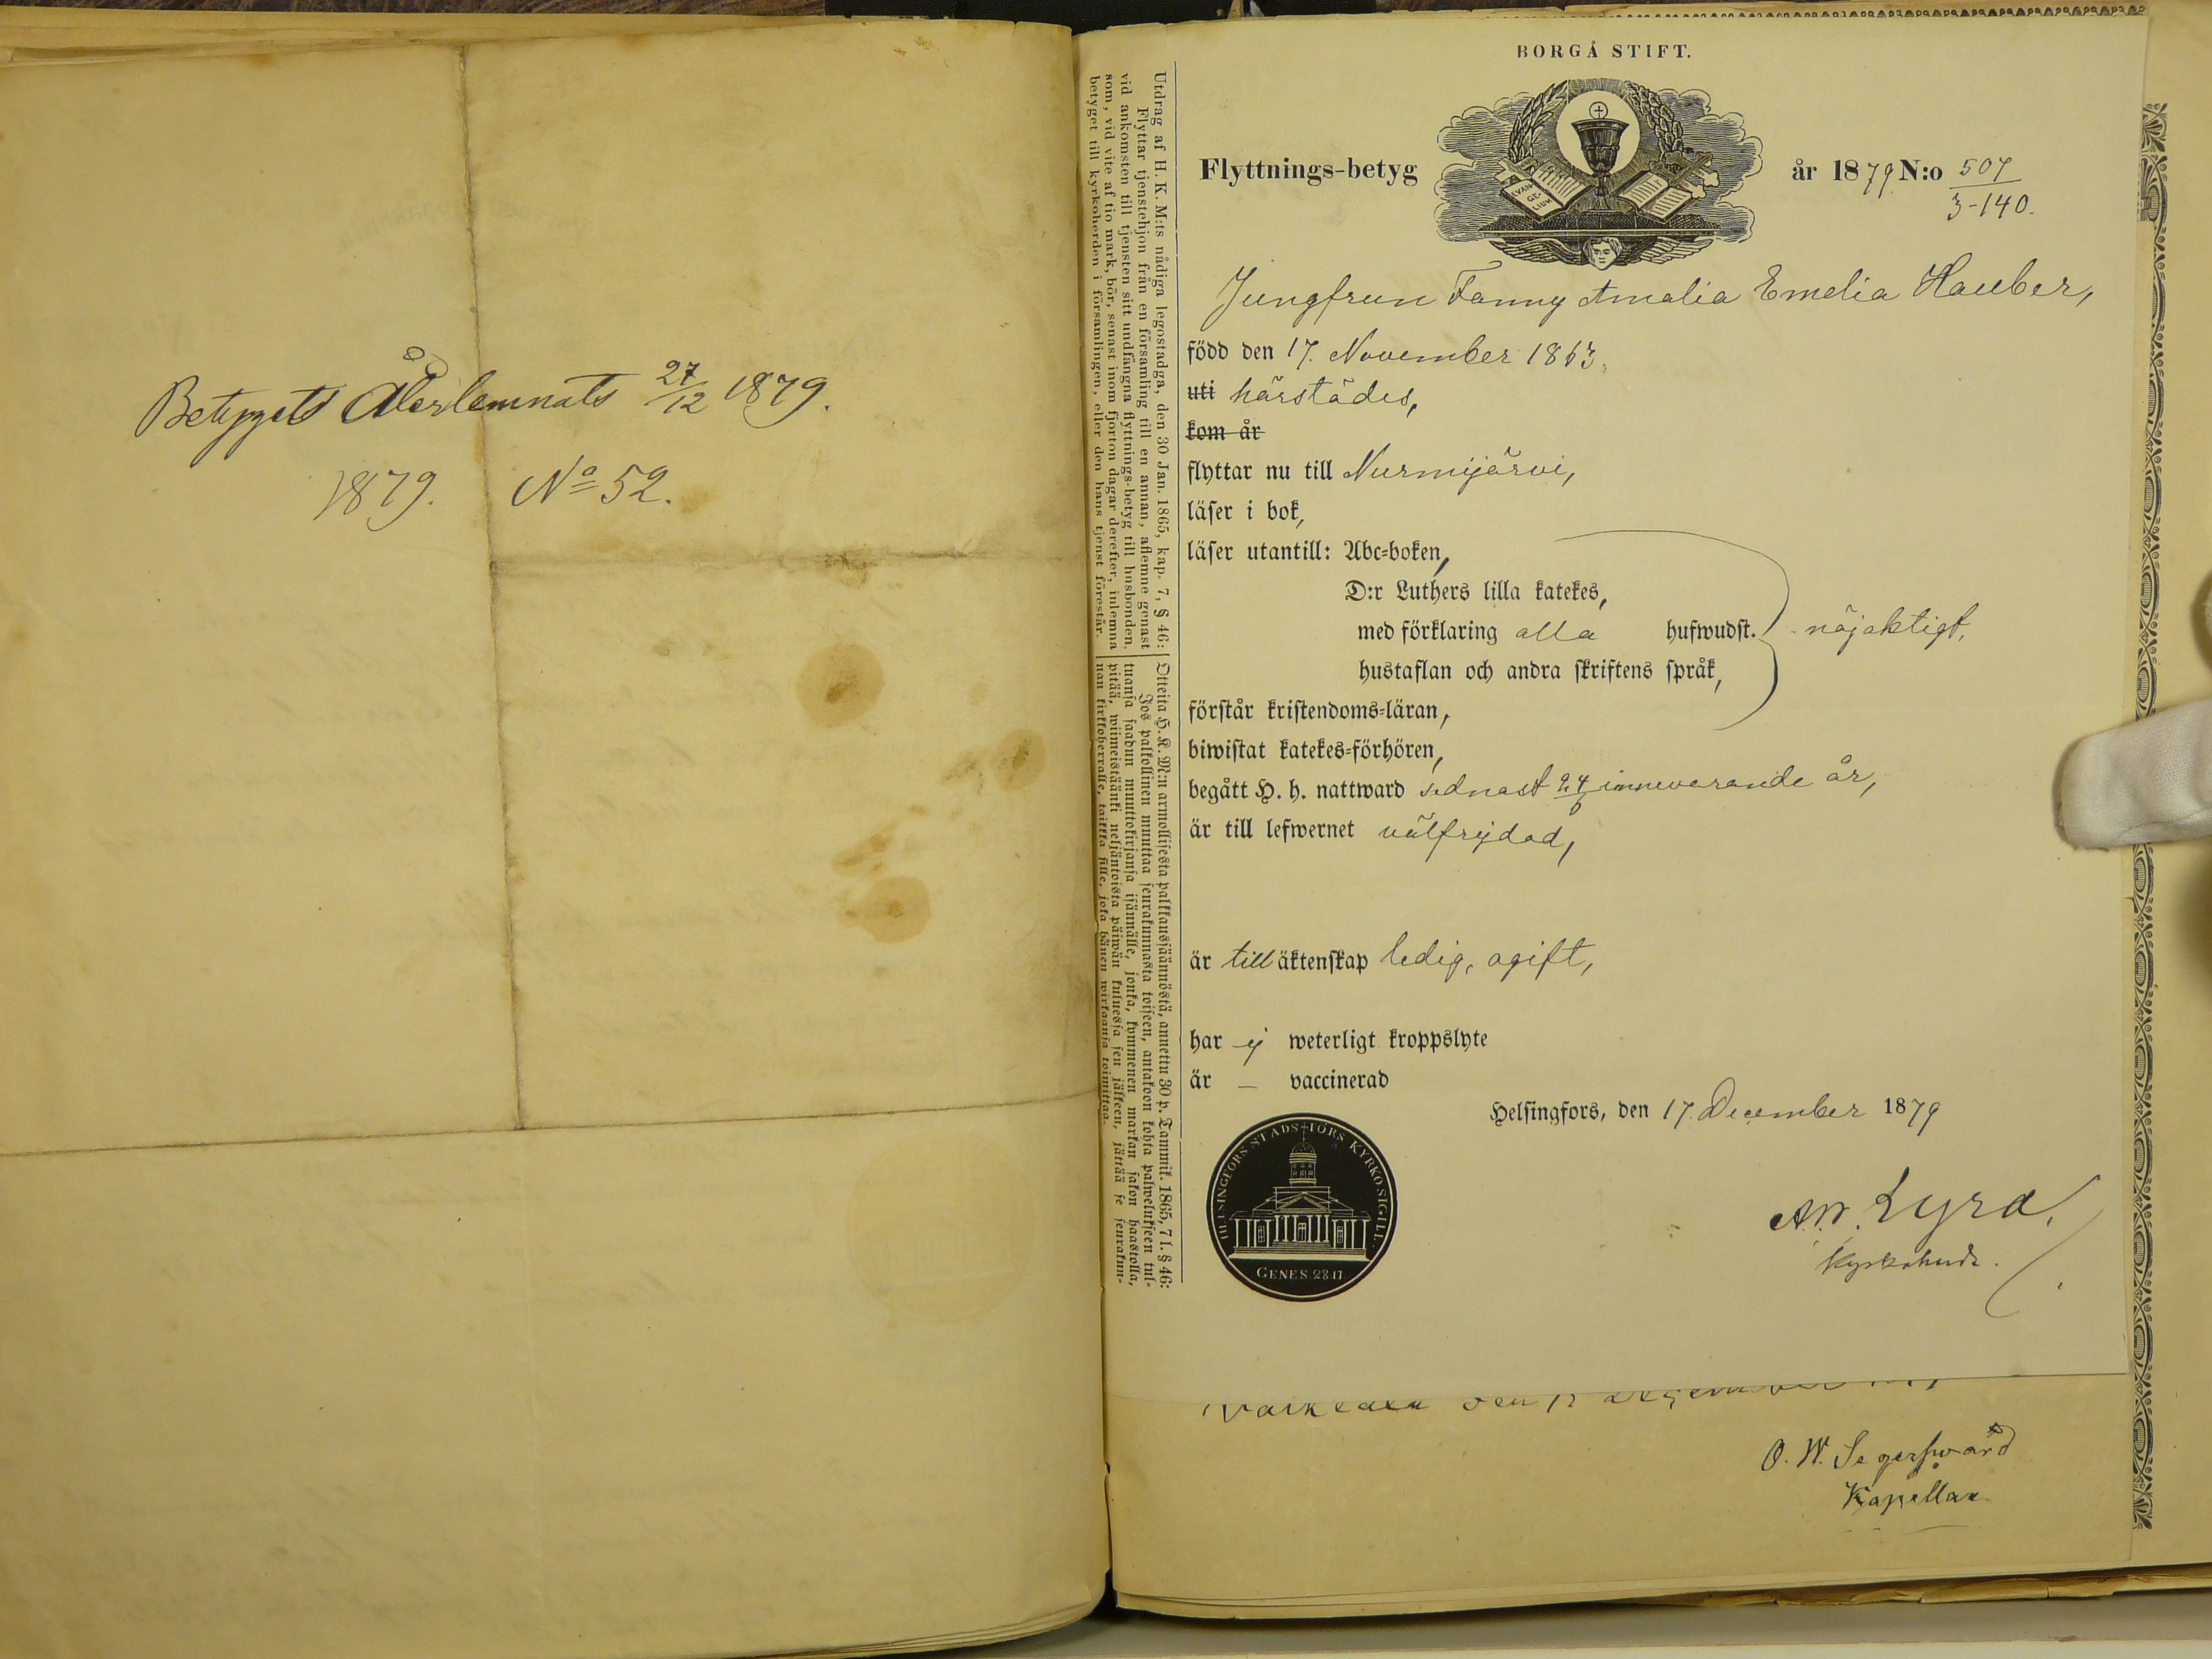 Betygets Återlemnats 27/12 1879.
1879. No 52.
Utdrag af H. K. M:ts nådiga legostadga, den 30 Jan. 1865, kap. 7, § 46:
Flyttar tjenstehjon från en församling till en annan, aflemne genast
vid ankomsten till tjensten sitt undfångna flyttnings-betyg till husbonden,
som, vid vite af tio mark, bör, senast inom fjorton dagar derefter, inlemna
betyget till kyrkoherden i församlingen, eller den hans tjenst förestår.
Otteita H. K. M:n armollisesta palkkausjäännöstä, annettu 30 p. Tammik. 1865, 7 l. § 46:
Jos palkollinen muuttaa seurakunnasta toiseen, antakoon kohta palwelukseen tul-
tuansa saadun muuttokirjansa isännälle, jonka, kymmenen markan sakon haastolla,
pitää, wiimeistäänki neljäntoista päiwän kuluessa sen jälkeen, jättää se seurakun-
nan kirkkoherralle, taikka sille, joka hänen wirkaansa toimittaa.
BORGÅ STIFT.
Flyttnings-betyg
EVAN-
GE-
LIUM
år 1879 N:o 507
3-140.
Jungfrun Fanny Amalia Emelia Hauber,
född den 17. November 1863.
uti härstädes,
kom år
flyttar nu till Nurmijärvi,
läser i bok,
läser utantill: Abc-boken,
D:r Luthers lilla katekes,
med förklaring alla hufwudst. nöjaktigt,
hustaflan och andra skriftens språk,
förstår kristendoms-läran,
biwistat katekes-förhören,
begått H. h. nattward sednast 24/6 innevarande år,
är till lefwernet välfrejdad,
är till äktenskap ledig, ogift,
har ej weterligt kroppslyte
är — vaccinerad
Helsingfors, den 17. December 1879
HELSINGFORS STADS FÖRS KYRKO SIGILL.
GENES. 28.17
A.W. Lyra.
Kyrkoherde.
den 17 December
O. W. Segersward
Kapellan